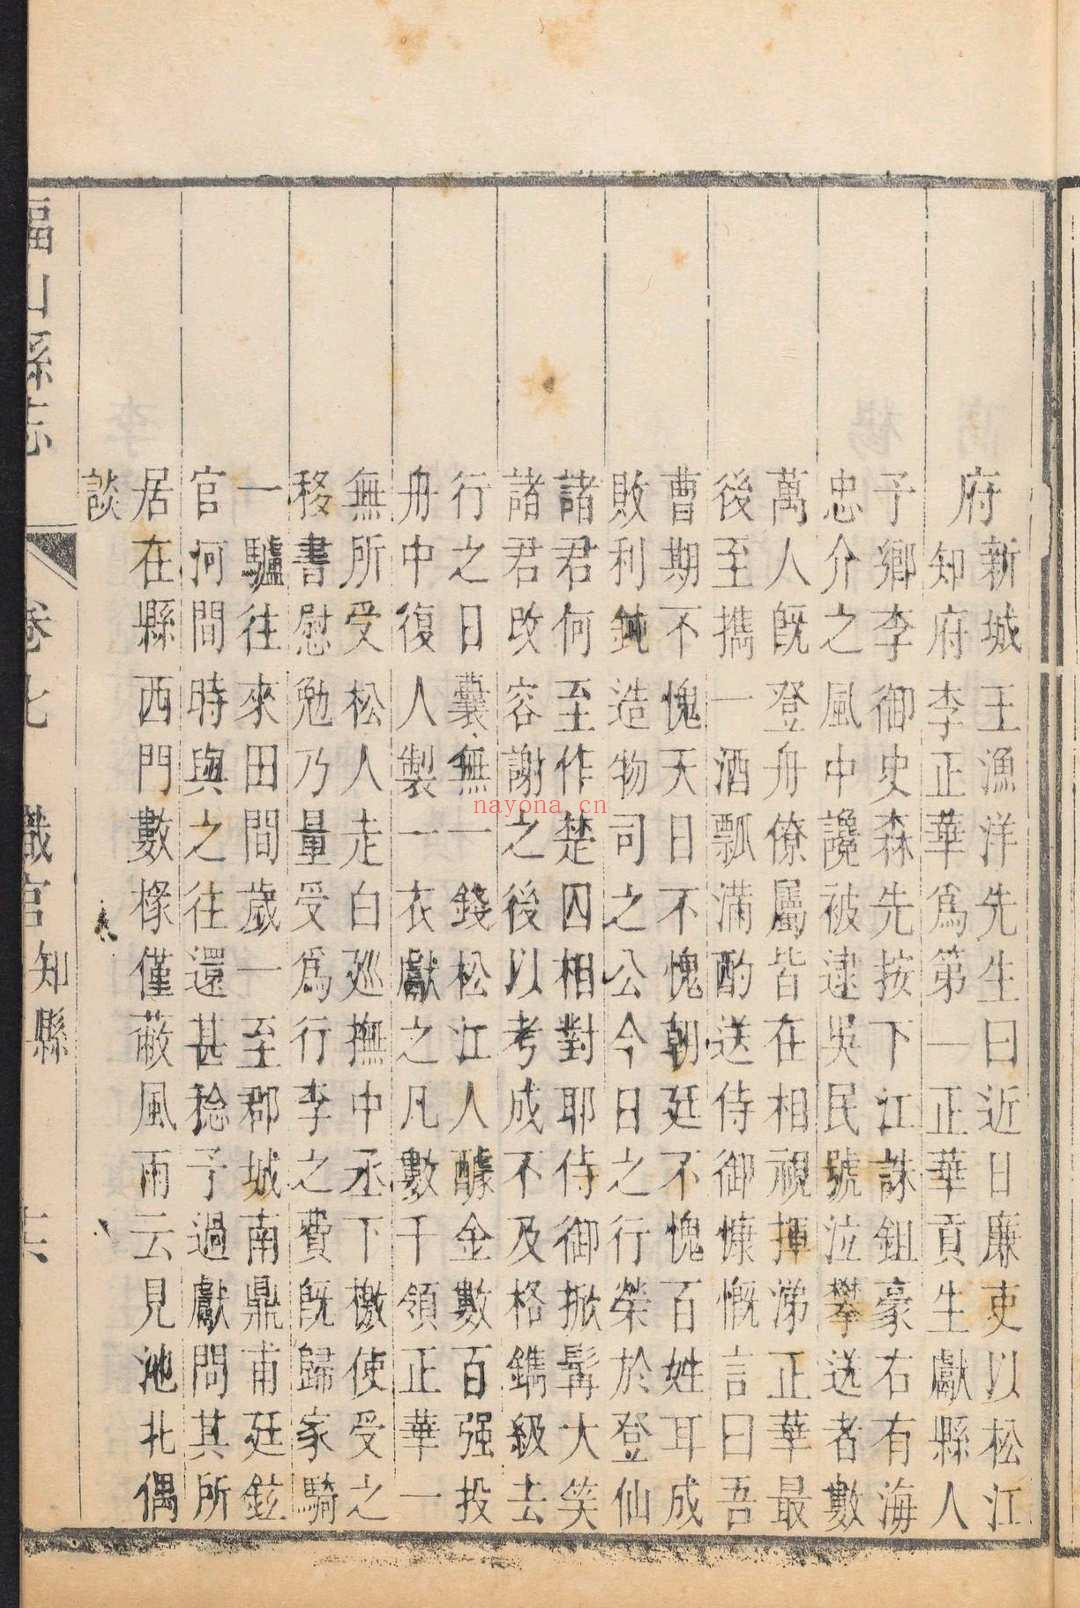 新城王漁洋先生曰近日廉吏以松江
府知府李正華爲第一正華貢生獻縣人
予鄉李御史森先按下江誅鉏豪右有海
忠介之風中讒被逮吳民號泣攀送者數
萬人既登舟僚屬皆在相視揮涕正華最
後至攜一酒瓢滿酌送侍御慷慨言曰吾
曹期不愧天日不愧朝廷不愧百姓耳成
敗利鈍造物司之公今日之行榮於登仙
諸君何至作楚囚相對耶侍御掀髯大笑
諸君改容謝之後以考成不及格鐫級去
行之日囊無一錢松江人醵金數百强投
舟中復人製一衣獻之凡數千領正華一
無所受松人走白廵撫中丞下檄使受之
移書慰勉乃量受爲行李之費既歸家騎
一驢往來田間歲一至郡城南鼎甫廷鉉
官河間時與之往還甚稔予過獻問其所
居在縣西門數椽僅蔽風雨云見池北偶
談
福山縣志 卷七 職官 知縣
nayona.cn